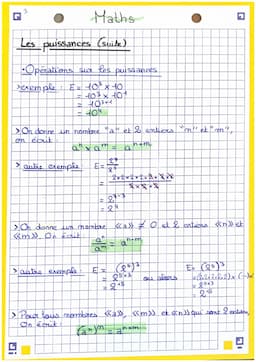 Maths
Les puissances (suite)
• Opérations sur les puissances
> exemple : E = 10³ × 10
= 10³ × 10¹
= 10³⁺¹
= 10⁴
> On donne un nombre "a" et 2 entiers "n" et "m",
on écrit
aⁿ × aᵐ = aⁿ⁺ᵐ
> autre exemple : E =
= 2
> On donne un nombre «a» ≠ 0 et 2 entiers «n» et
«m». On écrit
aⁿ/aᵐ = aⁿ⁻ᵐ
> autre exemple : E = (2⁵)³ E = (2⁵)³
= 2⁵ˣ³ ou alors
= 2¹⁵ = 2¹⁵
> Pour tous nombres «a», «m» et «n» qui sont 2 entiers,
On écrit :
(aⁿ)ᵐ = aⁿˣᵐ